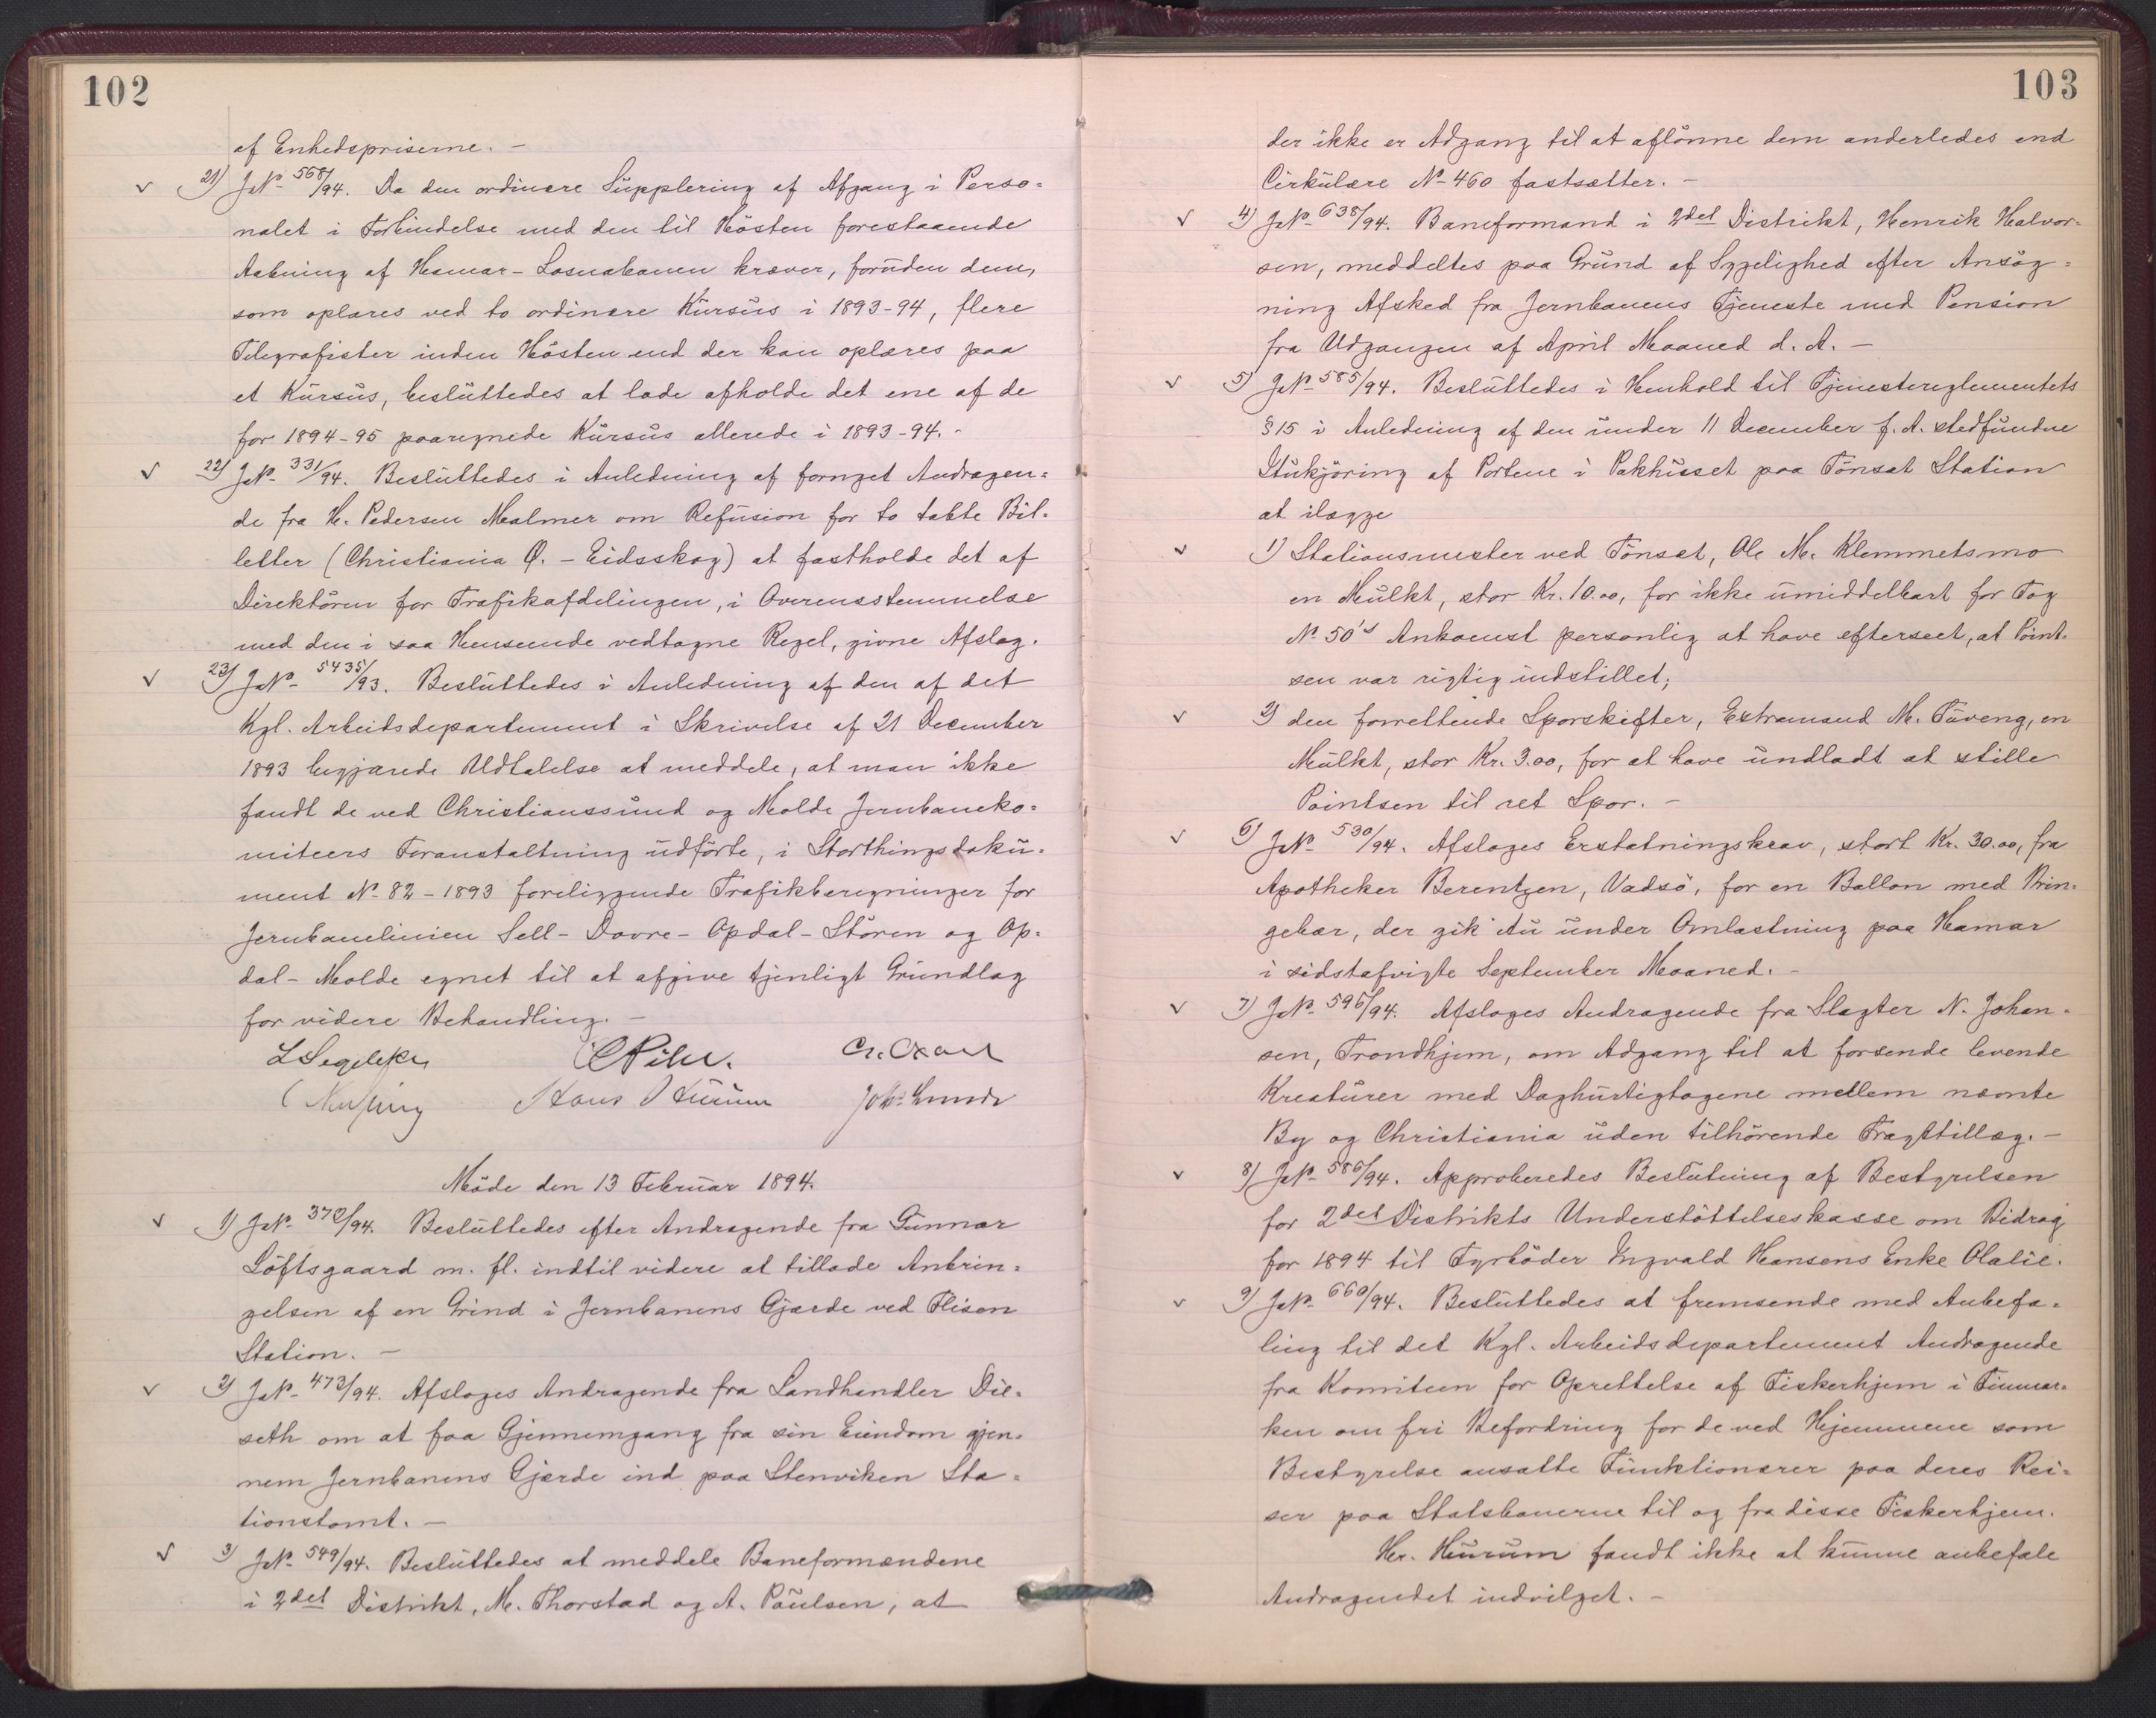 102
af Enhedspriserne. –
✓ 21) JNo 568/94. Da den ordinære Supplering af Afgang i Perso=
nalet i Forbindelse med den til Hösten forestaaende
Aabning af Hamar-Losnabanen kræver, foruden dem,
som oplæres ved to ordinære Kursus i 1893-94, flere
Telegrafister inden Hösten end der kan oplæres paa
et Kursus, besluttedes at lade afholde det ene af de
for 1894-95 paaregnede Kursus allerede i 1893-94. –
✓ 22) JNo 331/94. Besluttedes i Anledning af fornyet Andragen=
de fra H. Pedersen Malmer om Refusion for to tabte Bil=
letter (Christiania Ø. – Eidsskog) at fastholde det af
Direktören for Trafikafdelingen, i Overensstemmelse
med den i saa Henseende vedtagne Regel, givne Afslag.
✓ 23) JNo 5435/93. Besluttedes i Anledning af den af det
Kgl. Arbeidsdepartement i Skrivelse af 21 December
1893 begjærede Udtalelse at meddele, at man ikke
fandt de ved Christianssund og Molde Jernbaneko=
miteers Foranstaltning udförte, i Storthingsdoku=
ment No 82-1893 foreliggende Trafikberegninger for
Jernbanelinien Sell-Dovre-Opdal-Stören og Op=
dal-Molde egnet til at afgive tjenligt Grundlag
for videre Behandling. –
L Segelcke CPihl.
Hans Hurum
Möde den 13 Februar 1894.
✓ 1) JNo 370/94. Besluttedes efter Andragende fra Gunnar
Löftsgaard m. fl. indtil videre at tillade Anbrin=
gelsen af en Grind i Jernbanens Gjærde ved Flisen
Station. –
✓ 2) JNo 473/94. Afsloges Andragende fra Landhandler Die=
seth om at faa Gjennemgang fra sin Eiendom gjen=
nem Jernbanens Gjærde ind paa Stenviken Sta=
tionstomt. –
✓ 3) JNo 549/94. Besluttedes at meddele Baneformændene
i 2det Distrikt, M. Thorstad og A. Paulsen, at
103
der ikke er Adgang til at aflönne dem anderledes end
Cirkulære No 460 fastsætter. –
✓ 4) JNo 638/94. Baneformand i 2det Distrikt, Henrik Halvor=
sen, meddeltes paa Grund af Sygelighed efter Ansög=
ning Afsked fra Jernbanens Tjeneste med Pension
fra Udgangen af April Maaned d. A. –
✓ 5) JNo 585/94. Besluttedes i Henhold til Tjenestereglementets
§ 15 i Anledning af den under 11 December f. A. stedfundne
Itukjöring af Portene i Pakhuset paa Tönset Station
at ilægge
✓ 1) Stationsmester ved Tönset, Ole M. Klemmetsmo
en Mulkt, stor Kr. 10.00, for ikke umiddelbart før Tog
No 50's Ankomst personlig at have efterseet, at Point=
sen var rigtig indstillet;
✓ 2) den forrettende Sporskifter, Extramand M. Tuveng, en
Mulkt, stor Kr. 3.00, for at have undladt at stille
Pointsen til ret Spor. –
✓ 6) JNo 530/94. Afsloges Erstatningskrav, stort Kr. 30.00, fra
Apotheker Berentzen, Vadsö, for en Ballon med Brin=
gebær, der gik itu under Omlastning paa Hamar
i sidstafvigte September Maaned. –
✓ 7) JNo 596/94. Afsloges Andragende fra Slagter N. Johan=
sen, Trondhjem, om Adgang til at forsende levende
Kreaturer med Daghurtigtogene mellem nævnte
By og Christiania uden tilhörende Fragttillæg. –
✓ 8) JNo 586/94. Approberedes Beslutning af Bestyrelsen
for 2det Distrikts Understöttelseskasse om Bidrag
for 1894 til Fyrböder Ingvald Hansens Enke Olalie.
✓ 9) JNo 660/94. Besluttedes at fremsende med Anbefa=
ling til det Kgl. Arbeidsdepartement Andragende
fra Komiteen for Oprettelse af Fiskerhjem i Finmar=
ken om fri Befordring for de ved Hjemmene som
Bestyrelse ansatte Funktionærer paa deres Rei=
ser paa Statsbanerne til og fra disse Fiskerhjem.
Hr. Hurum fandt ikke at kunne anbefale
Andragendet indvilget. –